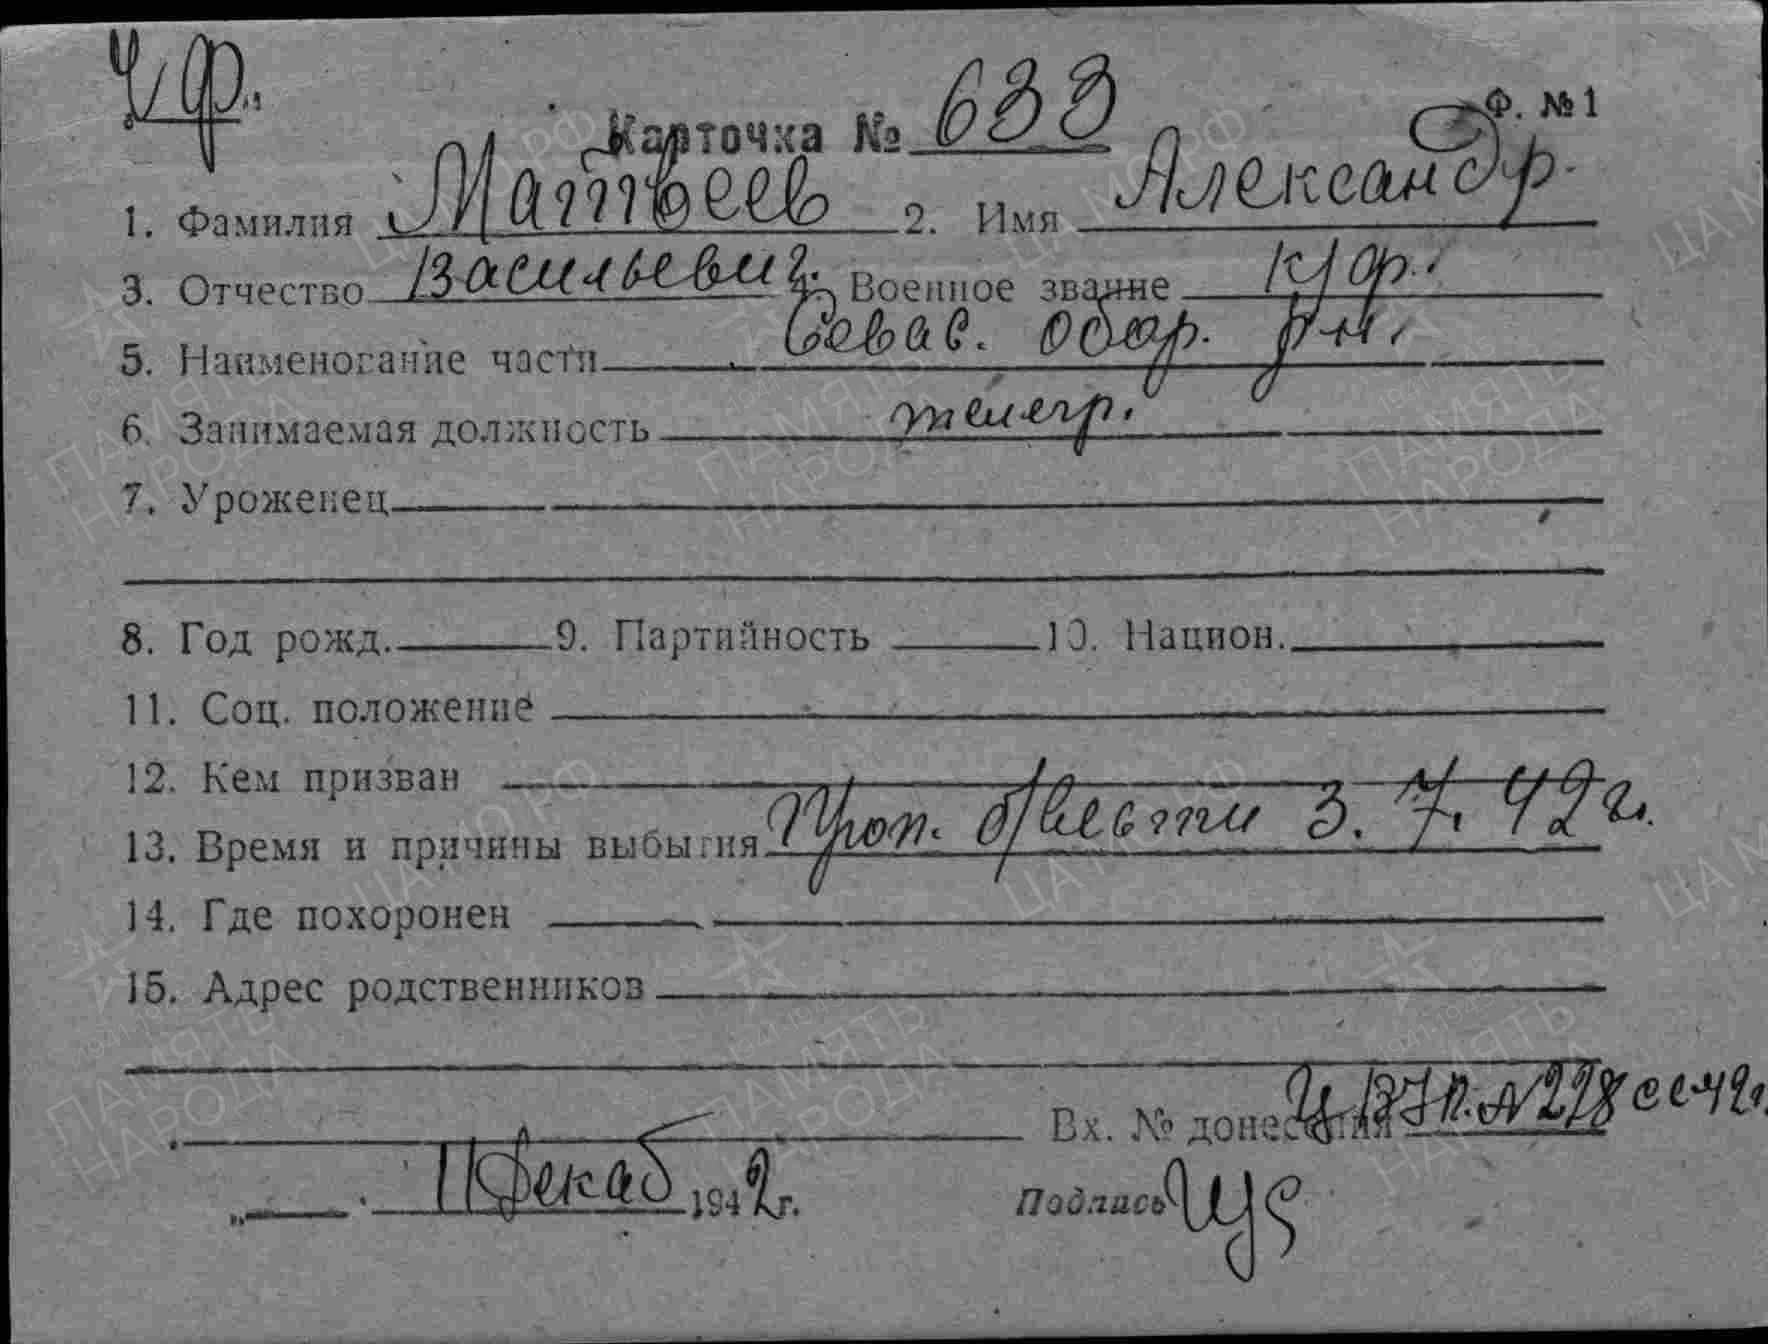 ч/ф.
Ф. №1
Карточка № 633
1. Фамилия Матвеев 2. Имя Александр.
3. Отчество Васильевич. Военное звание к/ф.
5. Наименование части Севас. обор. р-н.
6. Занимаемая должность телегр.
7. Уроженец
8. Год рожд. 9. Партийность 10. Национ.
11. Соц. положение
12. Кем призван
13. Время и причины выбытия Проп. б/вести 3. 7. 42 г.
14. Где похоронен
15. Адрес родственников
Вх. № донесения №228 сс 42г.
11 декаб 1942г. Подпись
ЦАМО РФ
1941-1945
ПАМЯТЬ
НАРОДА